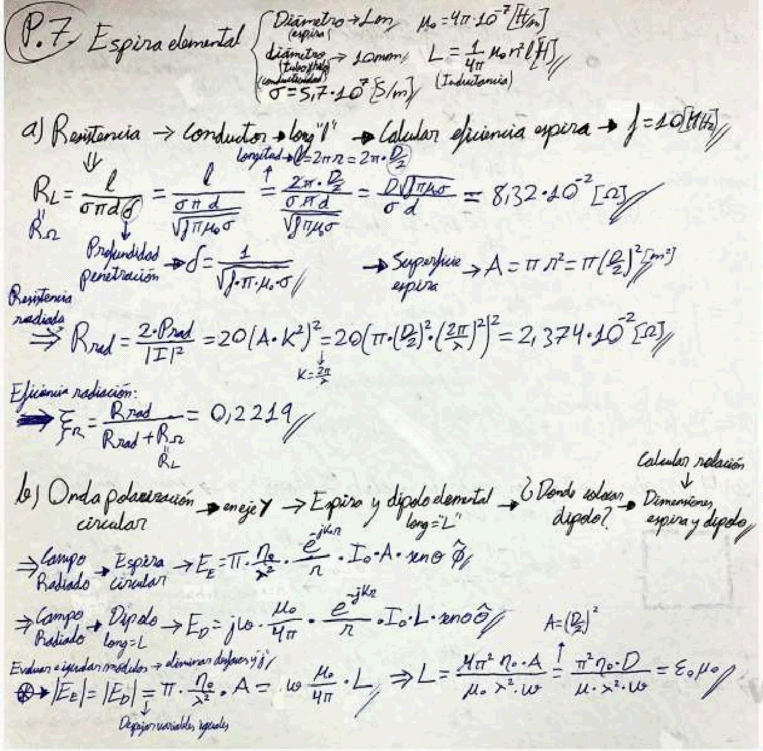 P.7 Espira elemental { Diámetro (espira) → 1m μ₀ = 4π·10⁻⁷ [H/m]
diámetro → 10mm L = 1/4π μ₀ n² l [H]
(conductividad) σ = 5,7·10⁷ [S/m] (Inductancia)
a) Resistencia → conductor → long "l" → Calcular eficiencia espira → f = 10 [MHz]
⇓ Longitud → l = 2πr = 2π·D/2
R_L = l/(σπdδ) = l/(σπd/√(fπμ₀σ)) = (2π·D/2)/(σ·π·d/√(fπμ₀σ)) = D√(fπμ₀σ)/(σd) = 8,32·10⁻² [Ω]
R_Ω
Profundidad penetración → δ = 1/√(f·π·μ₀·σ) → Superficie espira → A = πr² = π(D/2)² [m²]
Resistencia radiada
⇒ R_rad = 2·P_rad/|I|² = 20(A·K²)² = 20(π·(D/2)²·(2π/λ)²)² = 2,374·10⁻² [Ω]
K = 2π/λ
Eficiencia radiación:
⇒ ξ_R = R_rad/(R_rad + R_Ω) = 0,2219
R_L
Calcular relación
b) Onda polarización circular → en eje Y → Espira y dipolo elemental long="L" → ¿Donde colocar dipolo? → Dimensiones espira y dipolo
⇒ Campo Radiado → Espira circular → E_E = π·η₀/λ²·e^(-jKr)/r·I₀·A·senθ φ̂
⇒ Campo Radiado → Dipolo long=L → E_D = jω·μ₀/4π·e^(-jKr)/r·I₀·L·senθ θ̂ A = (D/2)²
Evaluar e igualar módulos → eliminar desfases y "j"
⊛→ |E_E| = |E_D| = π·η₀/λ²·A = ω μ₀/4π·L ⇒ L = 4π²η₀·A/(μ₀·λ²·ω) = π²η₀·D/(μ·λ²·ω) = ε₀μ₀
variables iguales